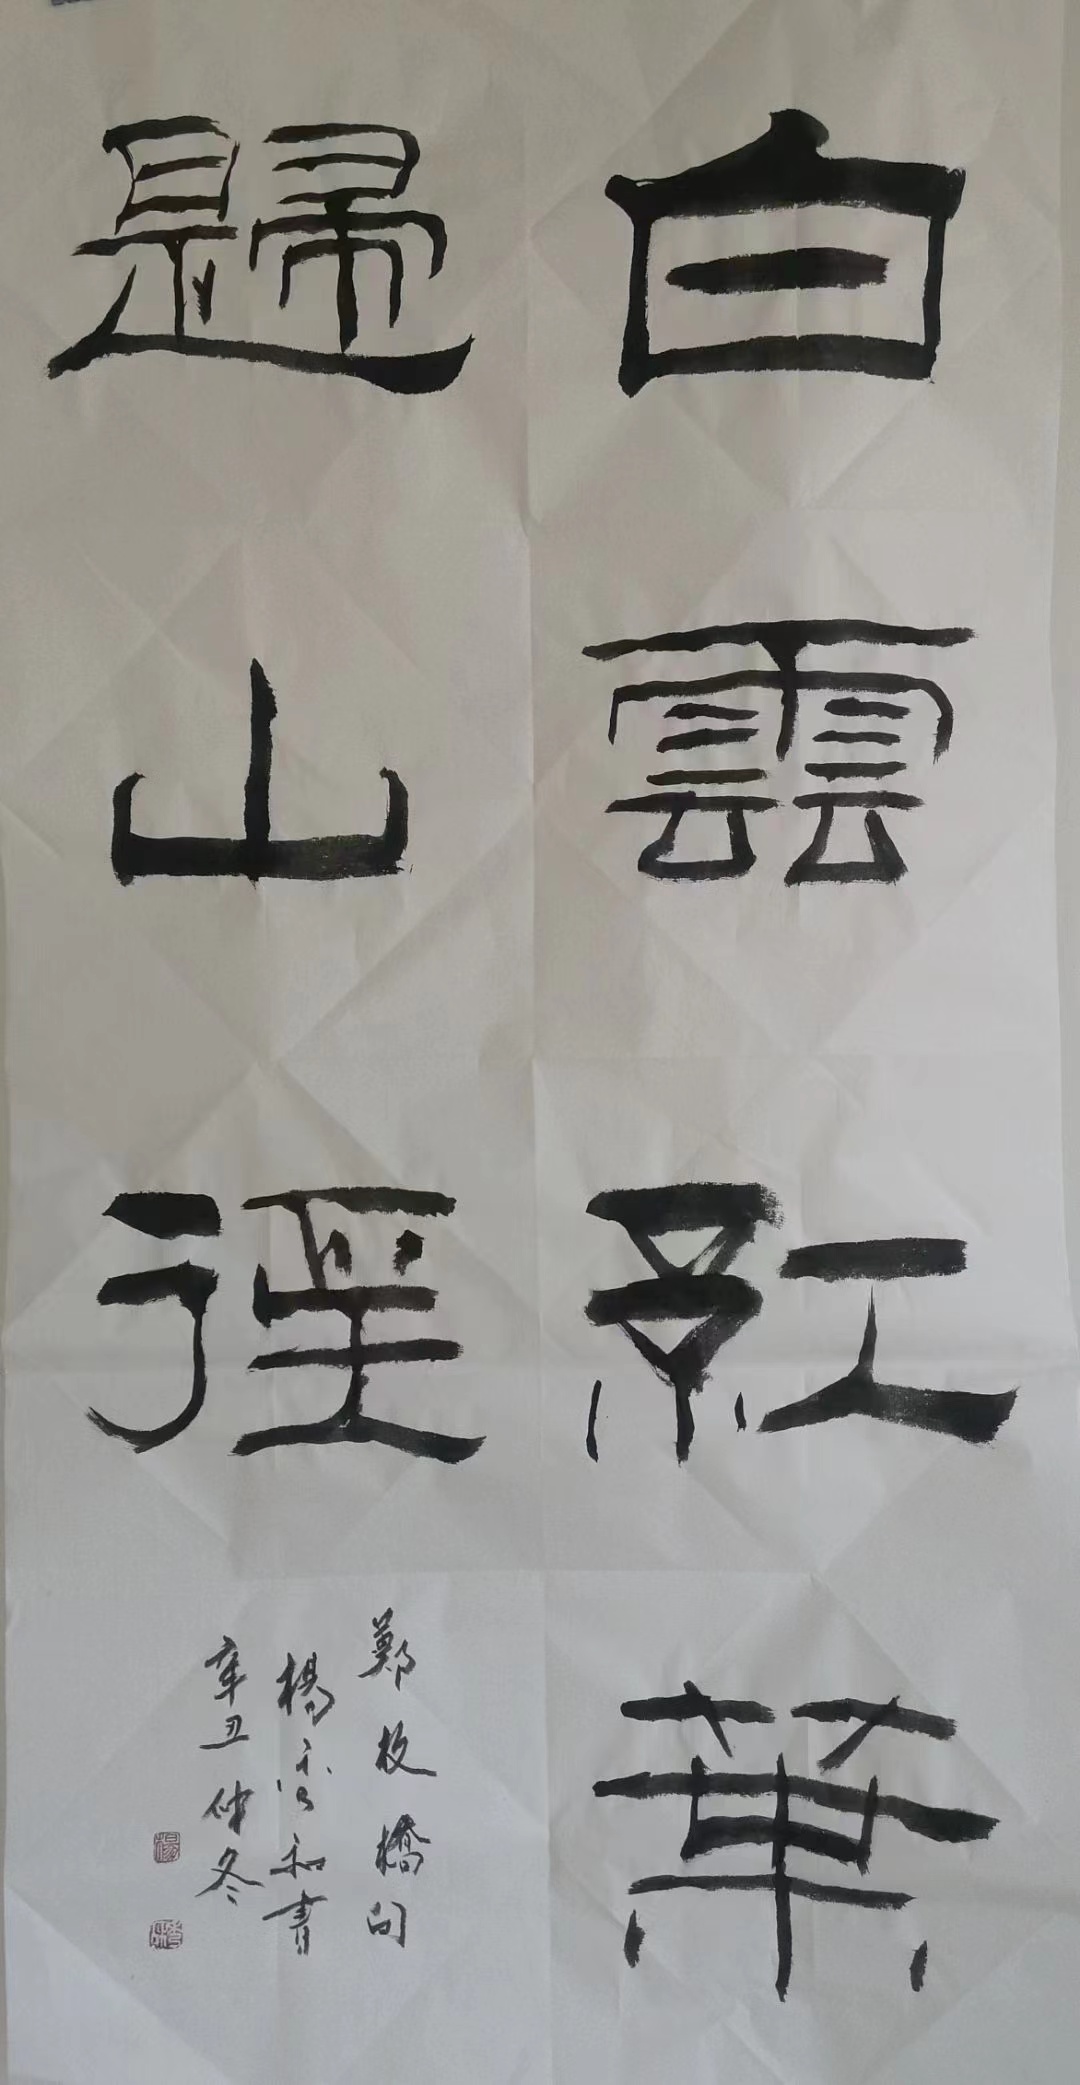 白雲紅葉
歸山徑
鄭板橋句
楊和書
辛丑仲冬
楊